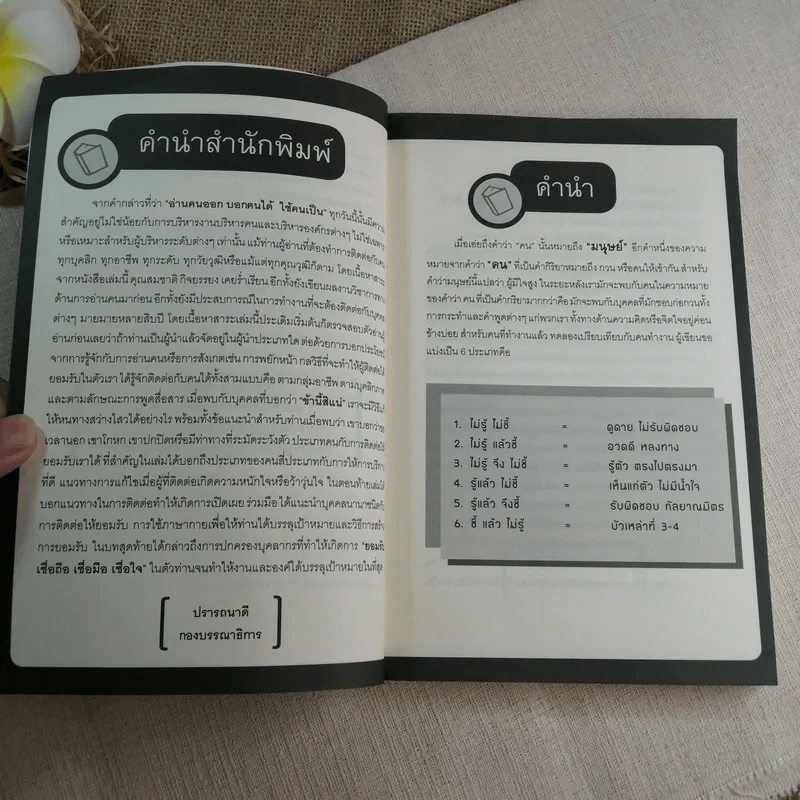 คำนำสำนักพิมพ์
จากคำกล่าวที่ว่า "อ่านคนออก บอกคนได้ ใช้คนเป็น" ทุกวันนี้นั้นมีความ
สำคัญอยู่ไม่ใช่น้อยกับการบริหารงานบริหารคนและบริหารองค์กรต่างๆ ไม่ใช่เฉพาะ
หรือเหมาะสำหรับผู้บริหารระดับต่างๆ เท่านั้น แม้ท่านผู้อ่านที่ต้องทำการติดต่อกับคน
ทุกบุคลิก ทุกอาชีพ ทุกระดับ ทุกวัยวุฒิหรือแม้แต่ทุกคุณวุฒิก็ตาม โดยเนื้อหาสาระ
จากหนังสือเล่มนี้ คุณสมชาติ กิจยรรยง เคยร่ำเรียน อีกทั้งยังเขียนผลงานวิชาการทาง
ด้านการอ่านคนมาก่อน อีกทั้งยังมีประสบการณ์ในการทำงานที่จะต้องติดต่อกับบุคคล
ต่างๆ มายมายหลายสิบปี โดยเนื้อหาสาระเล่มนี้ประเดิมเริ่มต้นก็ตรวจสอบตัวอ่านผู้
อ่านก่อนเลยว่าถ้าท่านเป็นผู้นำแล้วจัดอยู่ในผู้นำประเภทใด ต่อด้วยการบอกประโยชน์
จากการรู้จักกับการอ่านคนหรือการสังเกตเช่น การพยักหน้า กลวิธีที่จะทำให้ผู้ติดต่อ
ยอมรับในตัวเรา ได้รู้จักติดต่อกับคนได้ทั้งสามแบบคือ ตามกลุ่มอาชีพ ตามบุคลิกภาพ
และตามลักษณะการพูดสื่อสาร เมื่อพบกับบุคคลที่บอกว่า "ข้านี้สิแน่" เราจะมีวิธี
ให้หนทางสว่างไสวได้อย่างไร พร้อมทั้งข้อแนะนำสำหรับท่านเมื่อพบว่า เขาบอกว่า
เวลานอก เขาโกหก เขาปกปิดหรือมีท่าทางที่ระมัดระวังตัว ประเภทคนกับการติดต่อให้
ยอมรับเราได้ ที่สำคัญในเล่มได้บอกถึงประเภทของคนสี่ประเภทกับการให้การบริการ
ที่ดี แนวทางการแก้ไขเมื่อผู้ที่ติดต่อเกิดความหนักใจหรือว้าวุ่นใจ ในตอนท้ายเล่มได้
บอกแนวทางในการติดต่อทำให้เกิดการเปิดเผย ร่วมมือ ได้แนะนำบุคคลนานาชนิดกับ
การติดต่อให้ยอมรับ การใช้ภาษากายเพื่อให้ท่านได้บรรลุเป้าหมายและวิธีการสร้าง
การยอมรับ ในบทสุดท้ายได้กล่าวถึงการปกครองบุคลากรที่ทำให้เกิดการ "ยอมรับ
เชื่อถือ เชื่อมือ เชื่อใจ" ในตัวท่านจนทำให้งานและองค์ได้บรรลุเป้าหมายในที่สุด
ปรารถนาดี
กองบรรณาธิการ
คำนำ
เมื่อเอ่ยถึงคำว่า "คน" นั้นหมายถึง "มนุษย์" อีกคำหนึ่งของความ
หมายจากคำว่า "คน" ที่เป็นคำกิริยาหมายถึง กวน หรือคนให้เข้ากัน สำหรับ
คำว่ามนุษย์นี้แปลว่า ผู้มีใจสูง ในระยะหลังเรามักจะพบกับคนในความหมาย
ของคำว่า คน ที่เป็นคำกริยามากกว่าคือ มักจะพบกับบุคคลที่มักชอบก่อกวนทั้ง
การกระทำและคำพูดต่างๆ แก่พวกเรา ทั้งทางด้านความคิดหรือจิตใจอยู่ค่อน
ข้างบ่อย สำหรับคนที่ทำงานแล้ว ทดลองเปรียบเทียบกับคนทำงาน ผู้เขียนขอ
แบ่งเป็น 6 ประเภทคือ
1. ไม่รู้ ไม่ชี้ = ดูดาย ไม่รับผิดชอบ
2. ไม่รู้ แล้วชี้ = อวดดี หลงทาง
3. ไม่รู้ จึง ไม่ชี้ = รู้ตัว ตรงไปตรงมา
4. รู้แล้ว ไม่ชี้ = เห็นแก่ตัว ไม่มีน้ำใจ
5. รู้แล้ว จึงชี้ = รับผิดชอบ กัลยาณมิตร
6. ชี้ แล้ว ไม่รู้ = บัวเหล่าที่ 3-4